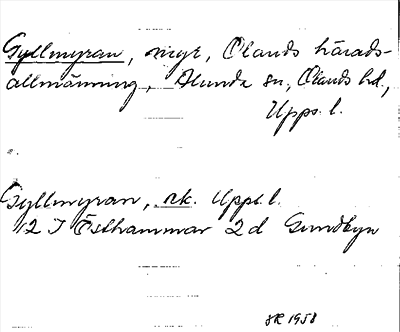 Gyllmyran, myr, Ölands härads-
allmänning, Alunda sn, Ölands hd,
Upps. l.
Gyllmyran, rk. Upps. l.
12 I Östhammar 2 d Gundbyn
SR 1958